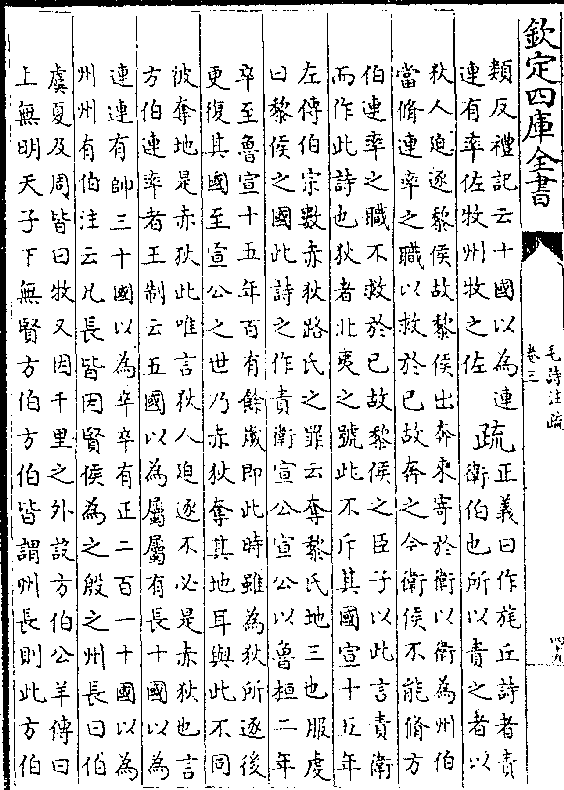 欽定四庫全書
毛詩注疏
卷三
四九
類反禮記云十國以為連
連有率佐牧州牧之佐
疏
正義曰作旄丘詩者責
衛伯也所以責之者以
狄人迫逐黎侯故黎侯出奔來寄於衛以衛為州伯
當脩連率之職以救於已故奔之今衛侯不能脩方
伯連率之職不救於已故黎侯之臣子以此言責衛
而作此詩也狄者北夷之號此不斥其國宣十五年
左傳伯宗數赤狄路氏之罪云奪黎氏地三也服虔
曰黎侯之國此詩之作責衛宣公宣公以魯桓二年
卒至魯宣十五年百有餘歲即此時雖為狄所逐後
更復其國至宣公之世乃赤狄奪其地耳與此不同
彼奪地是赤狄此唯言狄人迫逐不必是赤狄也言
方伯連率者王制云五國以為屬屬有長十國以為
連連有帥三十國以為卒卒有正二百一十國以為
州州有伯注云凡長皆因賢侯為之殷之州長曰伯
虞夏及周皆曰牧又因千里之外設方伯公羊傳曰
上無明天子下無賢方伯方伯皆謂州長則此方伯